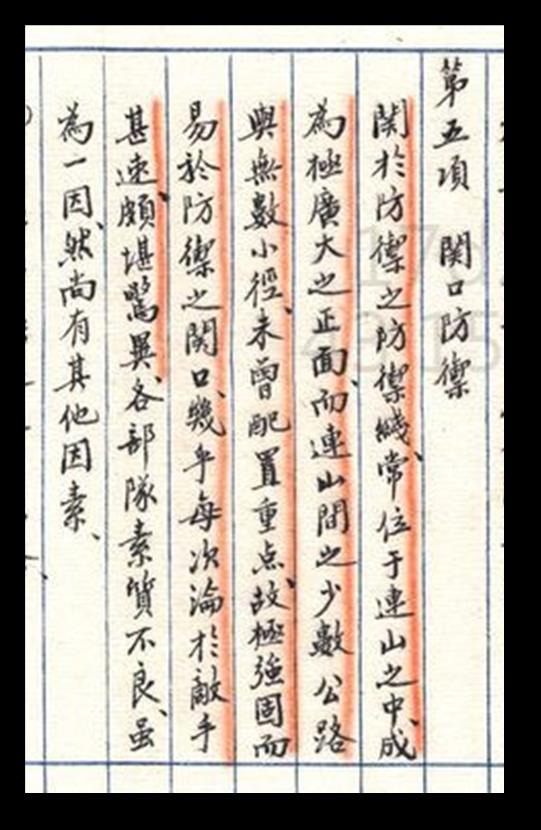 第五項 関口防禦
関於防禦之防禦綫、常位于連山之中、成
為極廣大之正面、而連山間之少數公路
與無數小徑、未曾配置重点、故極強固而
易於防禦之関口、幾乎每次淪於敵手
甚速、頗堪驚異、各部隊素質不良、虽
為一因、然尚有其他因素、